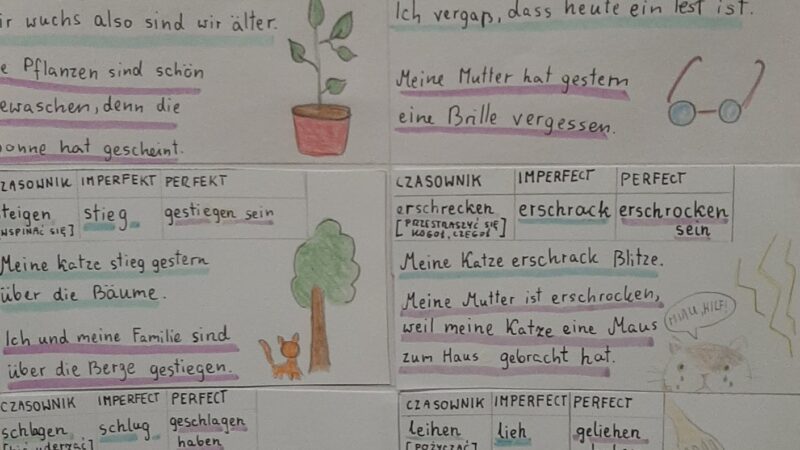 ir wuchs also sind wir älter.
e Pflanzen sind schön
ewaschen, denn die
onne hat gescheint.
Ich vergaß, dass heute ein Test ist.
Meine Mutter hat gestern
eine Brille vergessen.
ZASOWNIK IMPERFEKT PERFEKT
teigen stieg gestiegen sein
WSPINAĆ SIĘ]
Meine Katze stieg gestern
über die Bäume.
Ich und meine Familie sind
über die Berge gestiegen.
CZASOWNIK IMPERFECT PERFECT
erschrecken erschrack erschrocken
[PRZESTRASZYĆ SIĘ sein
KOGOŚ, CZEGOŚ]
Meine Katze erschrack Blitze.
Meine Mutter ist erschrocken,
weil meine Katze eine Maus
zum Haus gebracht hat.
MIAU, HILF!
CZASOWNIK IMPERFECT PERFECT
schlagen schlug geschlagen
haben
CZASOWNIK IMPERFECT PERFECT
leihen lieh geliehen
[POŻYCZAĆ]